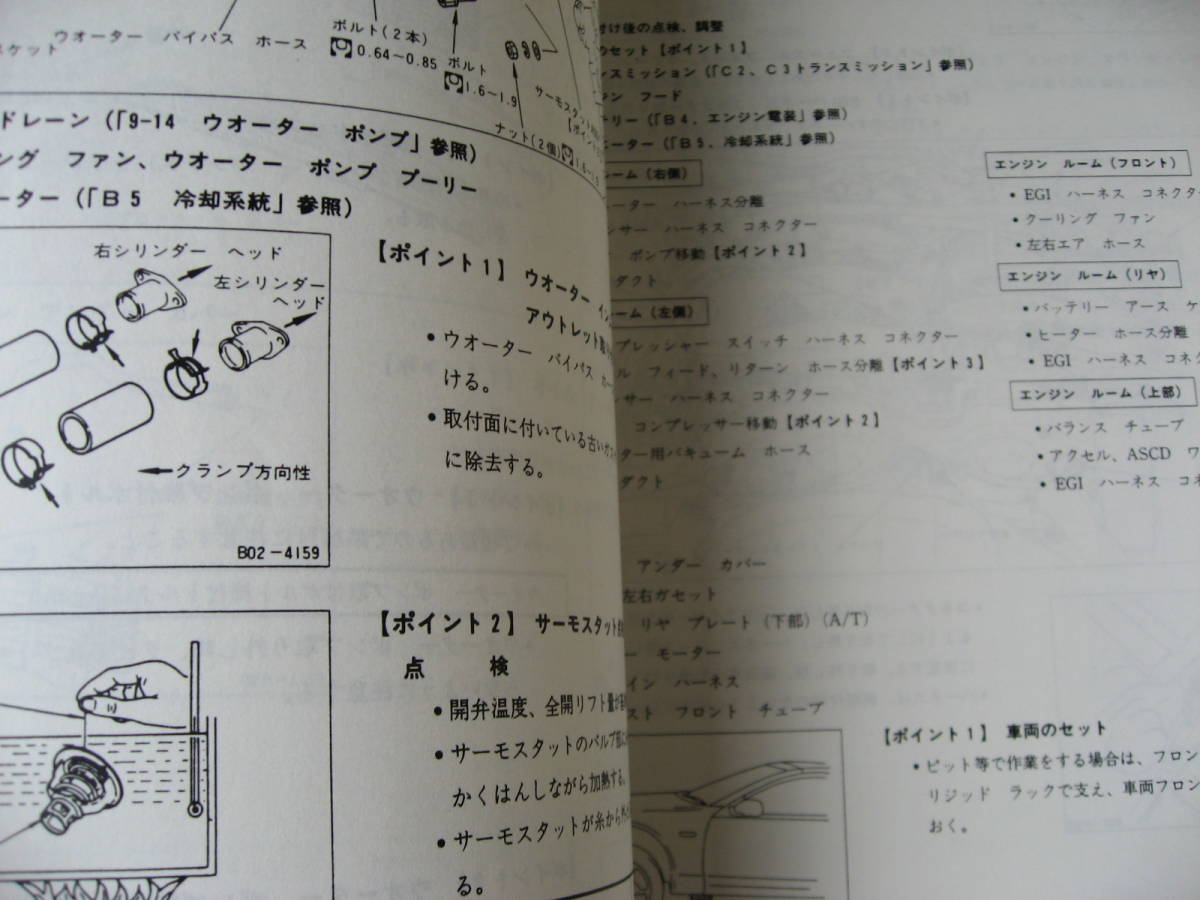 ボルト(2本)
ウオーター バイパス ホース
0.64～0.85
ボルト
1.6～1.9
サーモスタット
ナット(2個)
1.6～1.9
ドレーン(「9-14 ウオーター ポンプ」参照)
ング ファン、ウオーター ポンプ プーリー
ーター(「B5 冷却系統」参照)
右シリンダー ヘッド
左シリンダー
ヘッド
クランプ方向性
B02-4159
【ポイント1】 ウオーター
アウトレット
• ウオーター バイパス
ける。
• 取付面に付いている古い
に除去する。
【ポイント2】 サーモスタット
点 検
• 開弁温度、全開リフト量が
• サーモスタットのバルブ部に
かくはんしながら加熱する。
• サーモスタットが糸から
る。
付け後の点検、調整
のセット【ポイント1】
ンスミッション(「C2、C3トランスミッション」参照)
ジン フード
テリー(「B4、エンジン電装」参照)
エーター(「B5、冷却系統」参照)
ルーム(右側)
ーター ハーネス分離
ンサー ハーネス コネクター
ポンプ移動【ポイント2】
ダクト
ルーム(左側)
プレッシャー スイッチ ハーネス コネクター
ル フィード、リターン ホース分離【ポイント3】
ンサー ハーネス コネクター
コンプレッサー移動【ポイント2】
ター用バキューム ホース
ダクト
アンダー カバー
左右ガセット
リヤ プレート(下部)(A/T)
ー モーター
イン ハーネス
スト フロント チューブ
エンジン ルーム(フロント)
• EGI ハーネス コネクター
• クーリング ファン
• 左右エア ホース
エンジン ルーム(リヤ)
• バッテリー アース ケ
• ヒーター ホース分離
• EGI ハーネス コネク
エンジン ルーム(上部)
• バランス チューブ
• アクセル、ASCD ワ
• EGI ハーネス コネ
【ポイント1】 車両のセット
• ピット等で作業をする場合は、フロン
リジッド ラックで支え、車両フロン
おく。